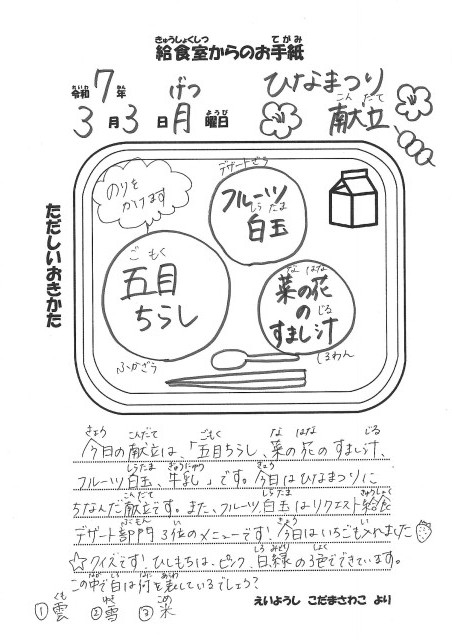 きゅうしょくしつ てがみ
給食室からのお手紙
れいわ ねん げつ ようび
令和7年 3月3日月曜日
ひなまつり
こんだて
献立
ただしいおきかた
のりを
かけます
デザートざら
フルーツ
しらたま
白玉
ごもく
五目
ちらし
なはな
菜の花
の
じる
すまし汁
ふかざら
しろわん
きょう こんだて ごもく な はな じる
今日の献立は、「五目ちらし、菜の花のすまし汁、
しらたま ぎゅうにゅう きょう
フルーツ白玉、牛乳」です。今日はひなまつりに
こんだて しらたま きゅうしょく
ちなんだ献立です。また、フルーツ白玉はリクエスト給食
ぶもん い きょう
デザート部門3位のメニューです!今日はいちごも入れました
しろ みどり しょく
☆クイズです!ひしもちは、ピンク、白、緑の3色でできています。
なか しろ なに あらわ
この中で白は何を表しているでしょう?
くも ゆき こめ
①雲 ②雪 ③米
えいようし こだまさわこ より